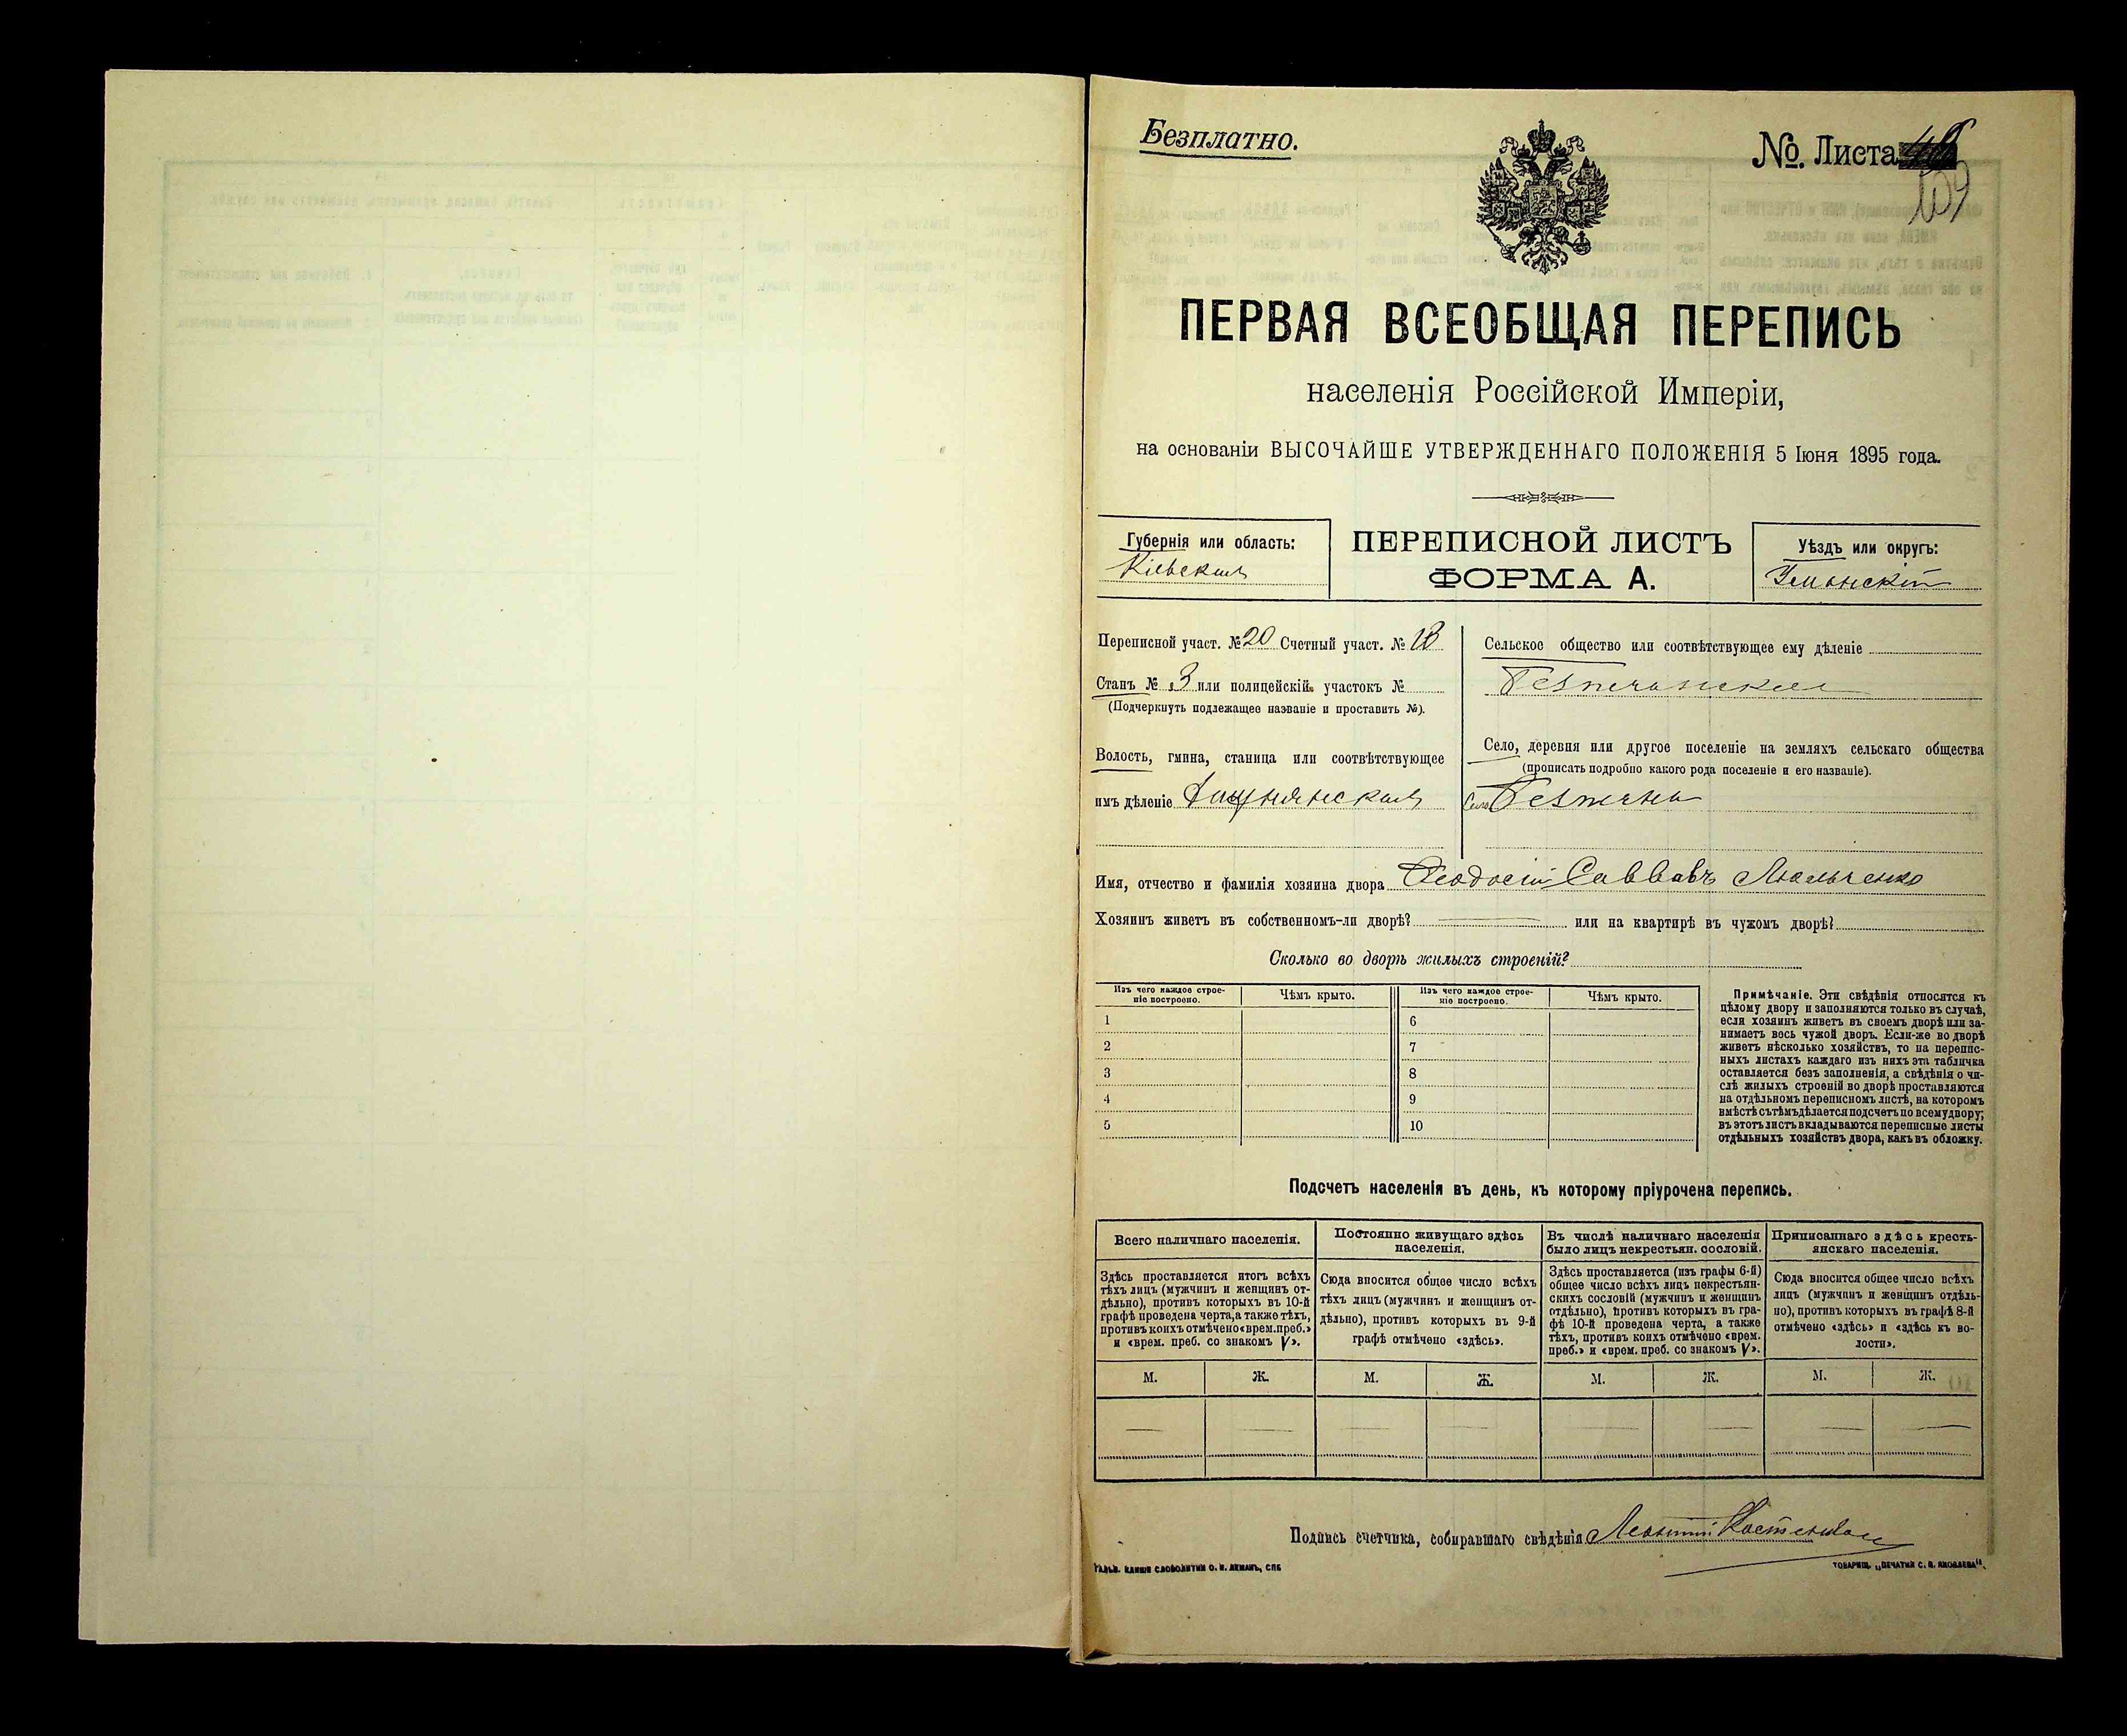 Безплатно.
№. Листа
109
ПЕРВАЯ ВСЕОБЩАЯ ПЕРЕПИСЬ
населенія Россійской Имперіи,
на основаніи ВЫСОЧАЙШЕ УТВЕРЖДЕННАГО ПОЛОЖЕНІЯ 5 Іюня 1895 года.
Губернія или область:
Кіевская
ПЕРЕПИСНОЙ ЛИСТЪ
ФОРМА А.
Уѣздъ или округъ:
Уманскій
Переписной участ. № 20 Счетный участ. № 18
Станъ № 3 или полицейскій участокъ №
(Подчеркнуть подлежащее названіе и проставить №).
Волость, гмина, станица или соотвѣтствующее
имъ дѣленіе
Сельское общество или соотвѣтствующее ему дѣленіе
Село, деревня или другое поселеніе на земляхъ сельскаго общества
(прописать подробно какого рода поселеніе и его названіе).
Село
Имя, отчество и фамилія хозяина двора Феодосій Саввавъ
Хозяинъ живетъ въ собственномъ-ли дворѣ? или на квартирѣ въ чужомъ дворѣ?
Сколько во дворѣ жилыхъ строеній?
Изъ чего каждое строе-
ніе построено.
Чѣмъ крыто.
Изъ чего каждое строе-
ніе построено.
Чѣмъ крыто.
1
2
3
4
5
6
7
8
9
10
Примѣчаніе. Эти свѣдѣнія относятся къ
цѣлому двору и заполняются только въ случаѣ,
если хозяинъ живетъ въ своемъ дворѣ или за-
нимаетъ весь чужой дворъ. Если-же во дворѣ
живетъ нѣсколько хозяйствъ, то на перепис-
ныхъ листахъ каждаго изъ нихъ эта табличка
оставляется безъ заполненія, а свѣдѣнія о чи-
слѣ жилыхъ строеній во дворѣ проставляются
на отдѣльномъ переписномъ листѣ, на которомъ
вмѣстѣ съ тѣмъ дѣлается подсчетъ по всему двору;
въ этотъ листъ вкладываются переписные листы
отдѣльныхъ хозяйствъ двора, какъ въ обложку.
Подсчетъ населенія въ день, къ которому пріурочена перепись.
Всего наличнаго населенія.
Здѣсь проставляется итогъ всѣхъ
тѣхъ лицъ (мужчинъ и женщинъ от-
дѣльно), противъ которыхъ въ 10-й
графѣ проведена черта, а также тѣхъ,
противъ коихъ отмѣчено «врем. преб.»
и «врем. преб. со знакомъ V».
М. Ж.
Постоянно живущаго здѣсь
населенія.
Сюда вносится общее число всѣхъ
тѣхъ лицъ (мужчинъ и женщинъ от-
дѣльно), противъ которыхъ въ 9-й
графѣ отмѣчено «здѣсь».
М. Ж.
Въ числѣ наличнаго населенія
было лицъ некрестьян. сословій.
Здѣсь проставляется (изъ графы 6-й)
общее число всѣхъ лицъ некрестьян-
скихъ сословій (мужчинъ и женщинъ
отдѣльно), противъ которыхъ въ гра-
фѣ 10-й проведена черта, а также
тѣхъ, противъ коихъ отмѣчено «врем.
преб.» и «врем. преб. со знакомъ V».
М. Ж.
Приписаннаго здѣсь кресть-
янскаго населенія.
Сюда вносится общее число всѣхъ
лицъ (мужчинъ и женщинъ отдѣль-
но), противъ которыхъ въ графѣ 8-й
отмѣчено «здѣсь» и «здѣсь къ во-
лости».
М. Ж.
Подпись счетчика, собиравшаго свѣдѣнія Леонтій
ГАЛЬВ. КЛИШЕ СЛОВОЛИТНИ О. И. ЛЕМАНЪ, СПБ
ТОВАРИЩ. „ПЕЧАТНЯ С. П. ЯКОВЛЕВА".